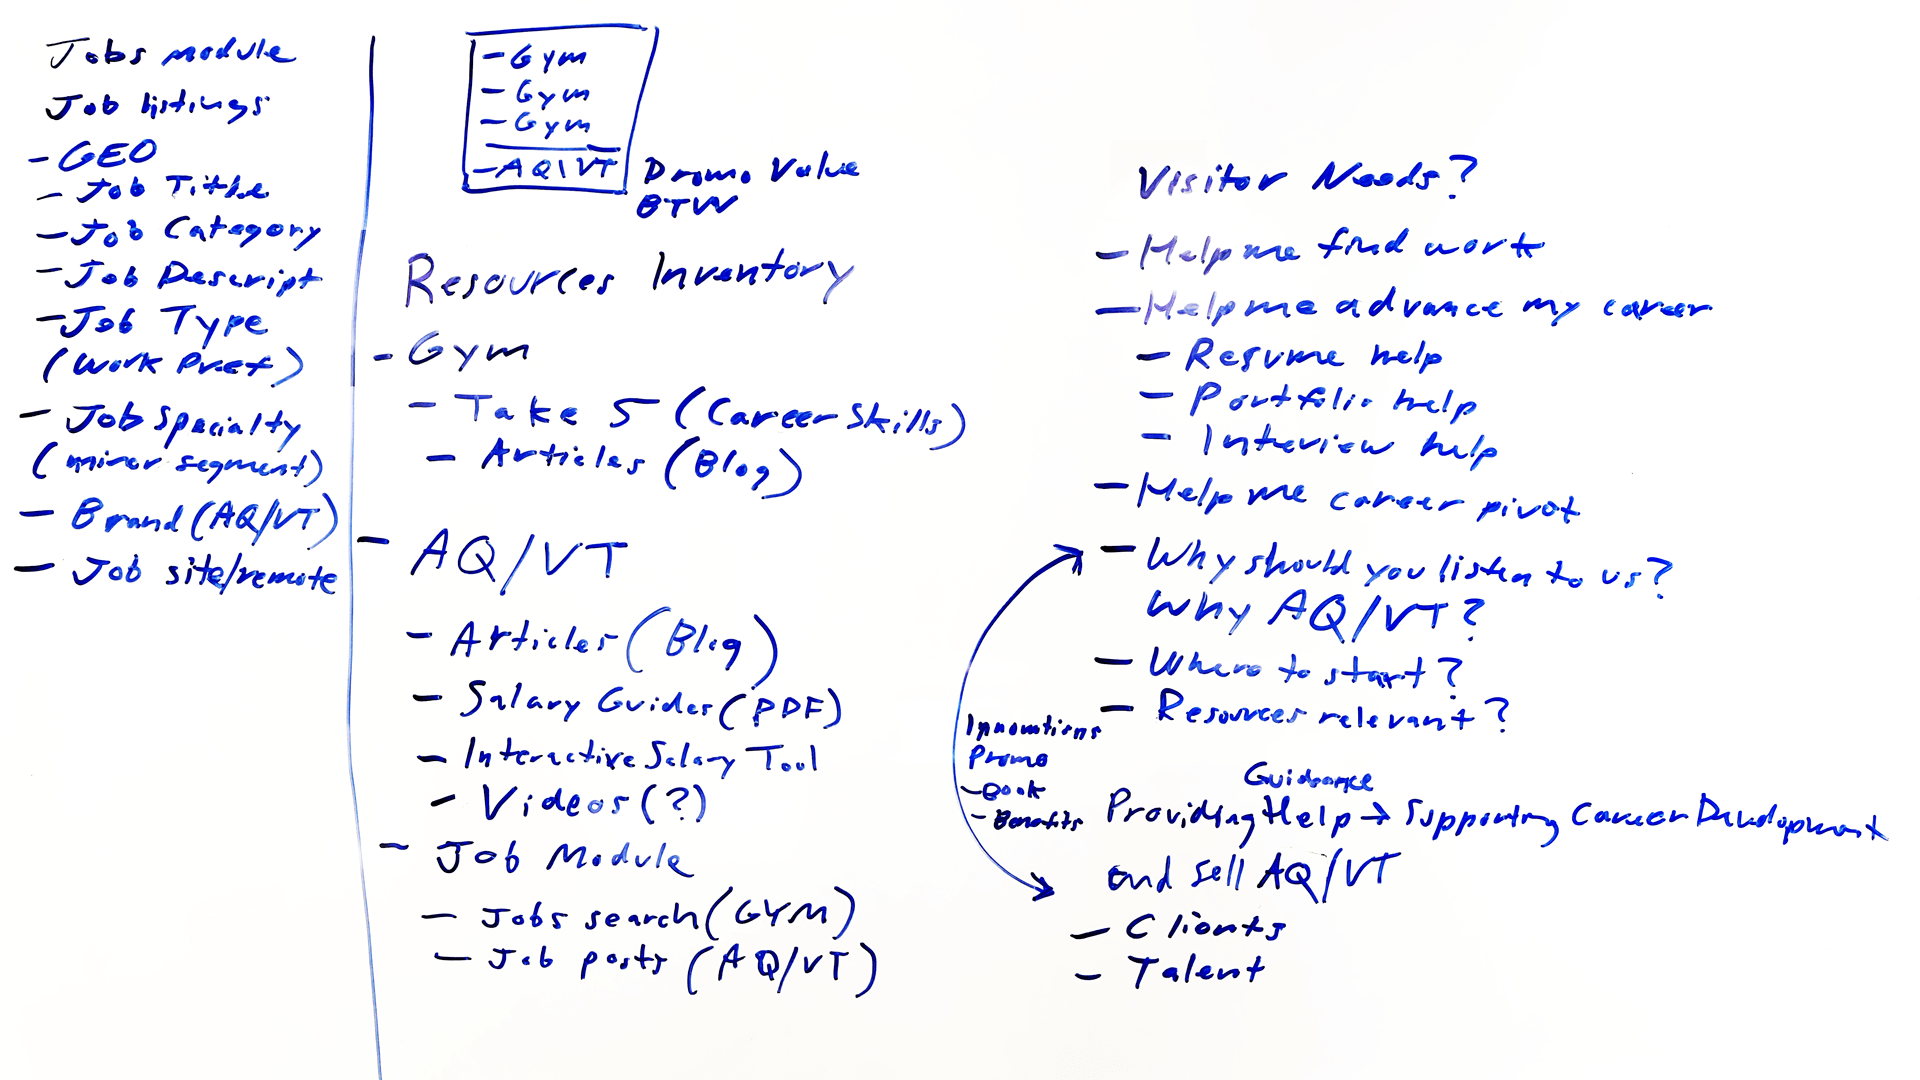 Jobs module
Job listings
- GEO
- Job Title
- Job Category
- Job Descript
- Job Type
(Work Pref)
- Job Specialty
(minor segment)
- Brand (AQ/VT)
- Job site/remote
- Gym
- Gym
- Gym
- AQ\VT
Promo Value
BTW
Resources Inventory
- Gym
- Take 5 (Career Skills)
- Articles (Blog)
- AQ/VT
- Articles (Blog)
- Salary Guides (PDF)
- Interactive Salary Tool
- Videos (?)
- Job Module
- Jobs search (GYM)
- Job posts (AQ/VT)
Visitor Needs?
- Help me find work
- Help me advance my career
- Resume help
- Portfolio help
- Interview help
- Help me career pivot
- Why should you listen to us?
Why AQ/VT?
- Where to start?
- Resources relevant?
Innovations
Promo
- Book
- Benefits
Guidance
Providing Help → Supporting Career Development
and sell AQ/VT
- Clients
- Talent